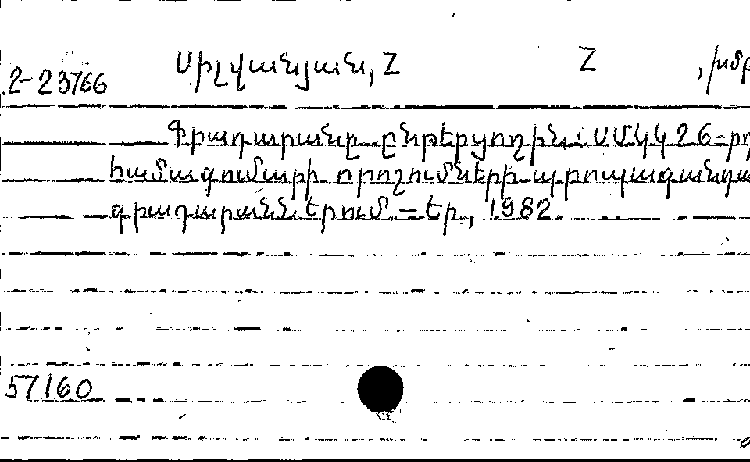 2-23766 Սիլվանյան, Հ Հ , խմբ
Գրադարանը ընթերցողին. ՍՄԿԿ 26-րդ
համագումարի որոշումների պրոպագանդա
գրադարաններում. – Եր., 1982.
57160